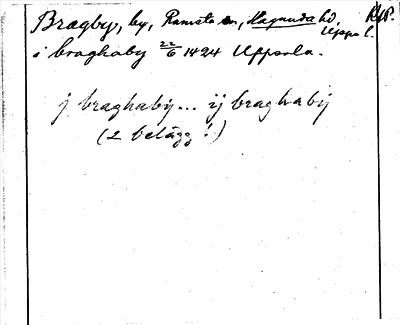 Bragby, by, Ramsta sn, Hagunda hd,
Uppsa l.
i braghaby 22/6 1424 Uppsala.
j braghaby... ij braghabij
(2 belägg!)